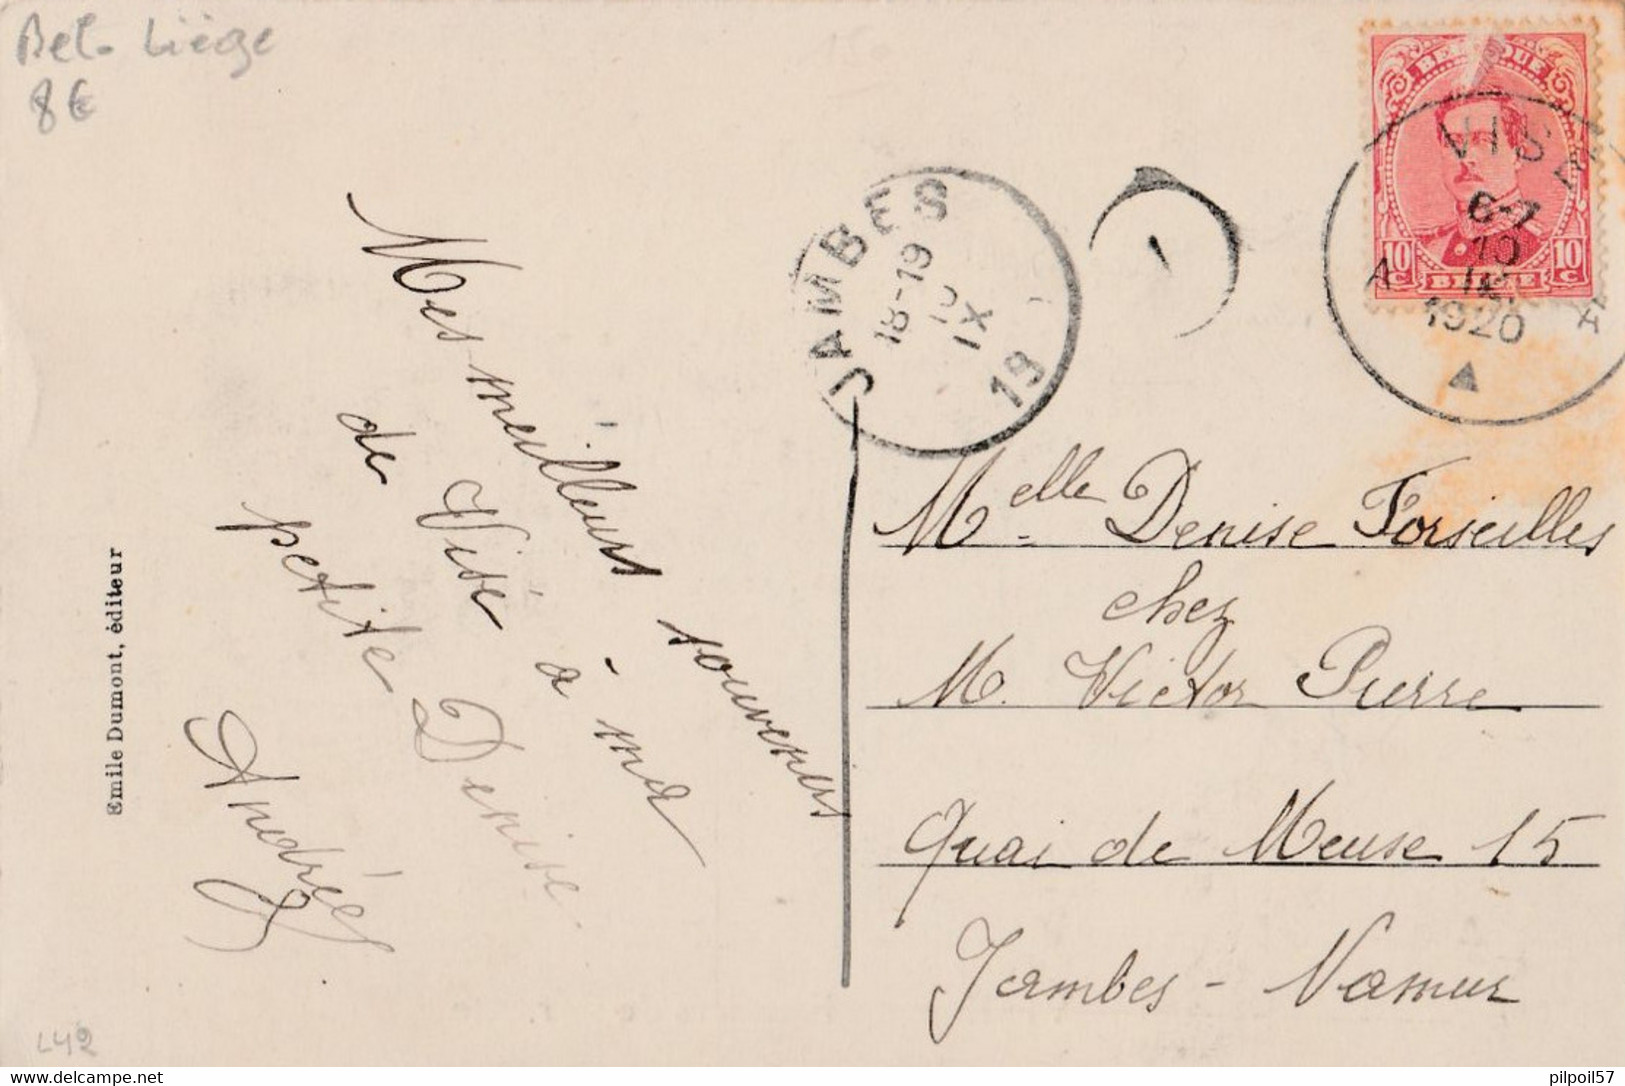 Bel. Liège
8€
BELGIQUE
10c 10c
BELGIE
VISE
6-7
10
IX
1920
A A
JAMBES
18-19
10
IX
19
Mes meilleurs souvenirs
de Visé à ma
petite Denise
Andrée
Melle Denise Forseilles
chez
M. Victor Pierre
Quai de Meuse 15
Jambes - Namur
Emile Dumont, éditeur
L42
https://www.delcampe.net
pilpoil57